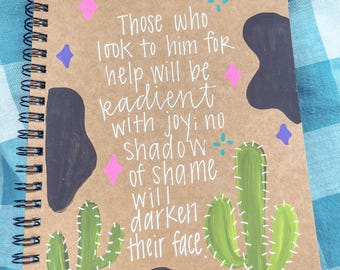 Those who
look to him for
help will be
Radient
with joy; no
Shadow
of shame
will
darken
their face.